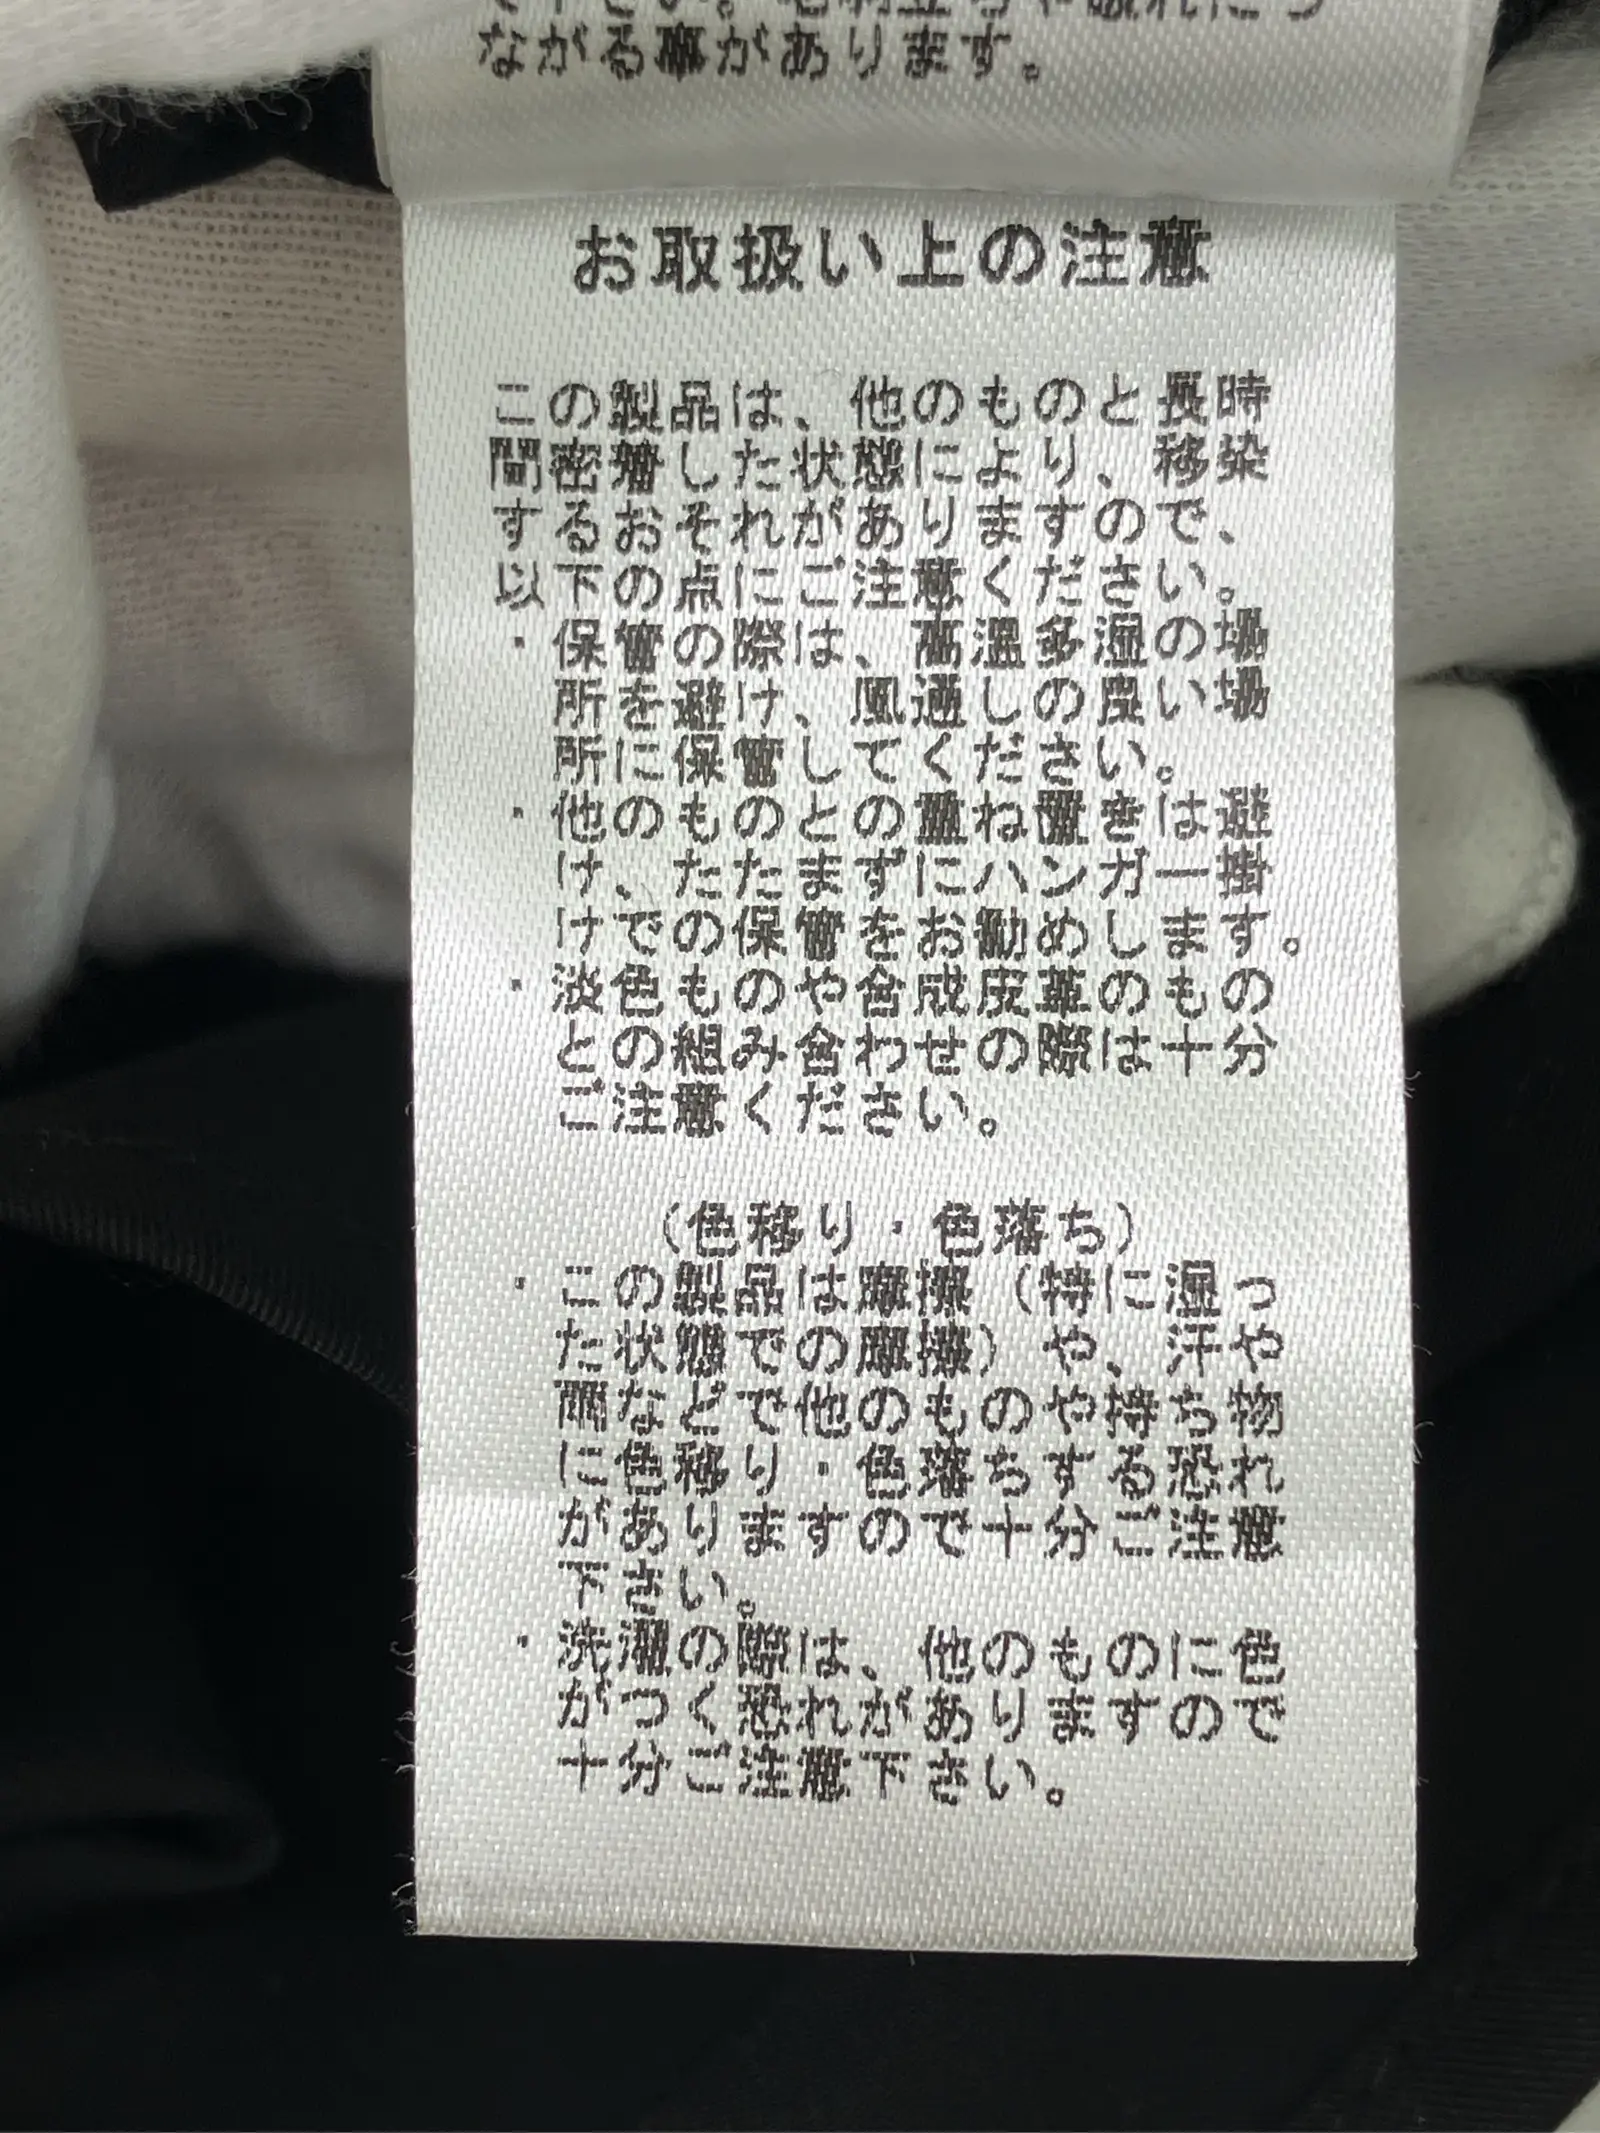 で下さい。毛羽立ちや破れにつ
ながる事があります。
お取扱い上の注意
この製品は、他のものと長時
間密着した状態により、移染
するおそれがありますので、
以下の点にご注意ください。
・保管の際は、高温多湿の場
所を避け、風通しの良い場
所に保管してください。
・他のものとの重ね置きは避
け、たたまずにハンガー掛
けでの保管をお勧めします。
・淡色ものや合成皮革のもの
との組み合わせの際は十分
ご注意ください。
（色移り・色落ち）
・この製品は摩擦（特に湿っ
た状態での摩擦）や、汗や
雨などで他のものや持ち物
に色移り・色落ちする恐れ
がありますので十分ご注意
下さい。
・洗濯の際は、他のものに色
がつく恐れがありますので
十分ご注意下さい。